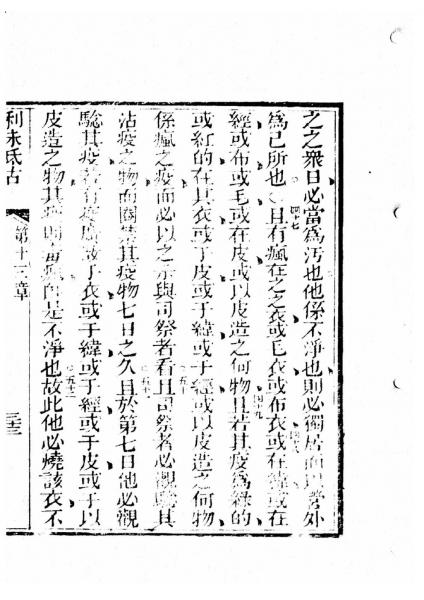 之之衆日必當爲汚也他係不淨也則必獨居而以營外
爲己所也○且有瘋在之之衣或毛衣或布衣或在緯或在
四十七
四十八
經或布或毛或在皮或以皮造之何物且若其疫爲綠的
四十九
或紅的在其衣或于皮或于緯或于經或以皮造之何物
係瘋之疫而必以之示與司祭者看且司祭者必觀驗其
五十
五十一
沾疫之物而關禁其疫物七日之久且於第七日他必觀
驗其疫若有廣脹于衣或于緯或于經或于皮或于以
皮造之物其疫是不淨也故此他必燒該衣不
五十二
利未氏古
第十三章
三三